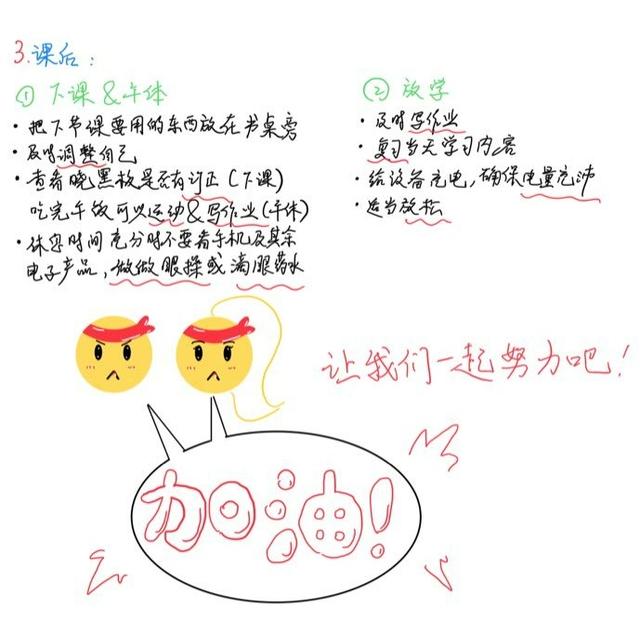 3.课后：
① 下课&午休
·把下节课要用的东西放在书桌旁
·及时调整自己
·查看晓黑板是否有订正(下课)
吃完午饭可以运动&写作业(午休)
·休息时间充分时不要看手机及其余
电子产品，做做眼操或滴眼药水
② 放学
·及时写作业
·复习当天学习内容
·给设备充电，确保电量充沛
·适当放松
让我们一起努力吧！
加油！